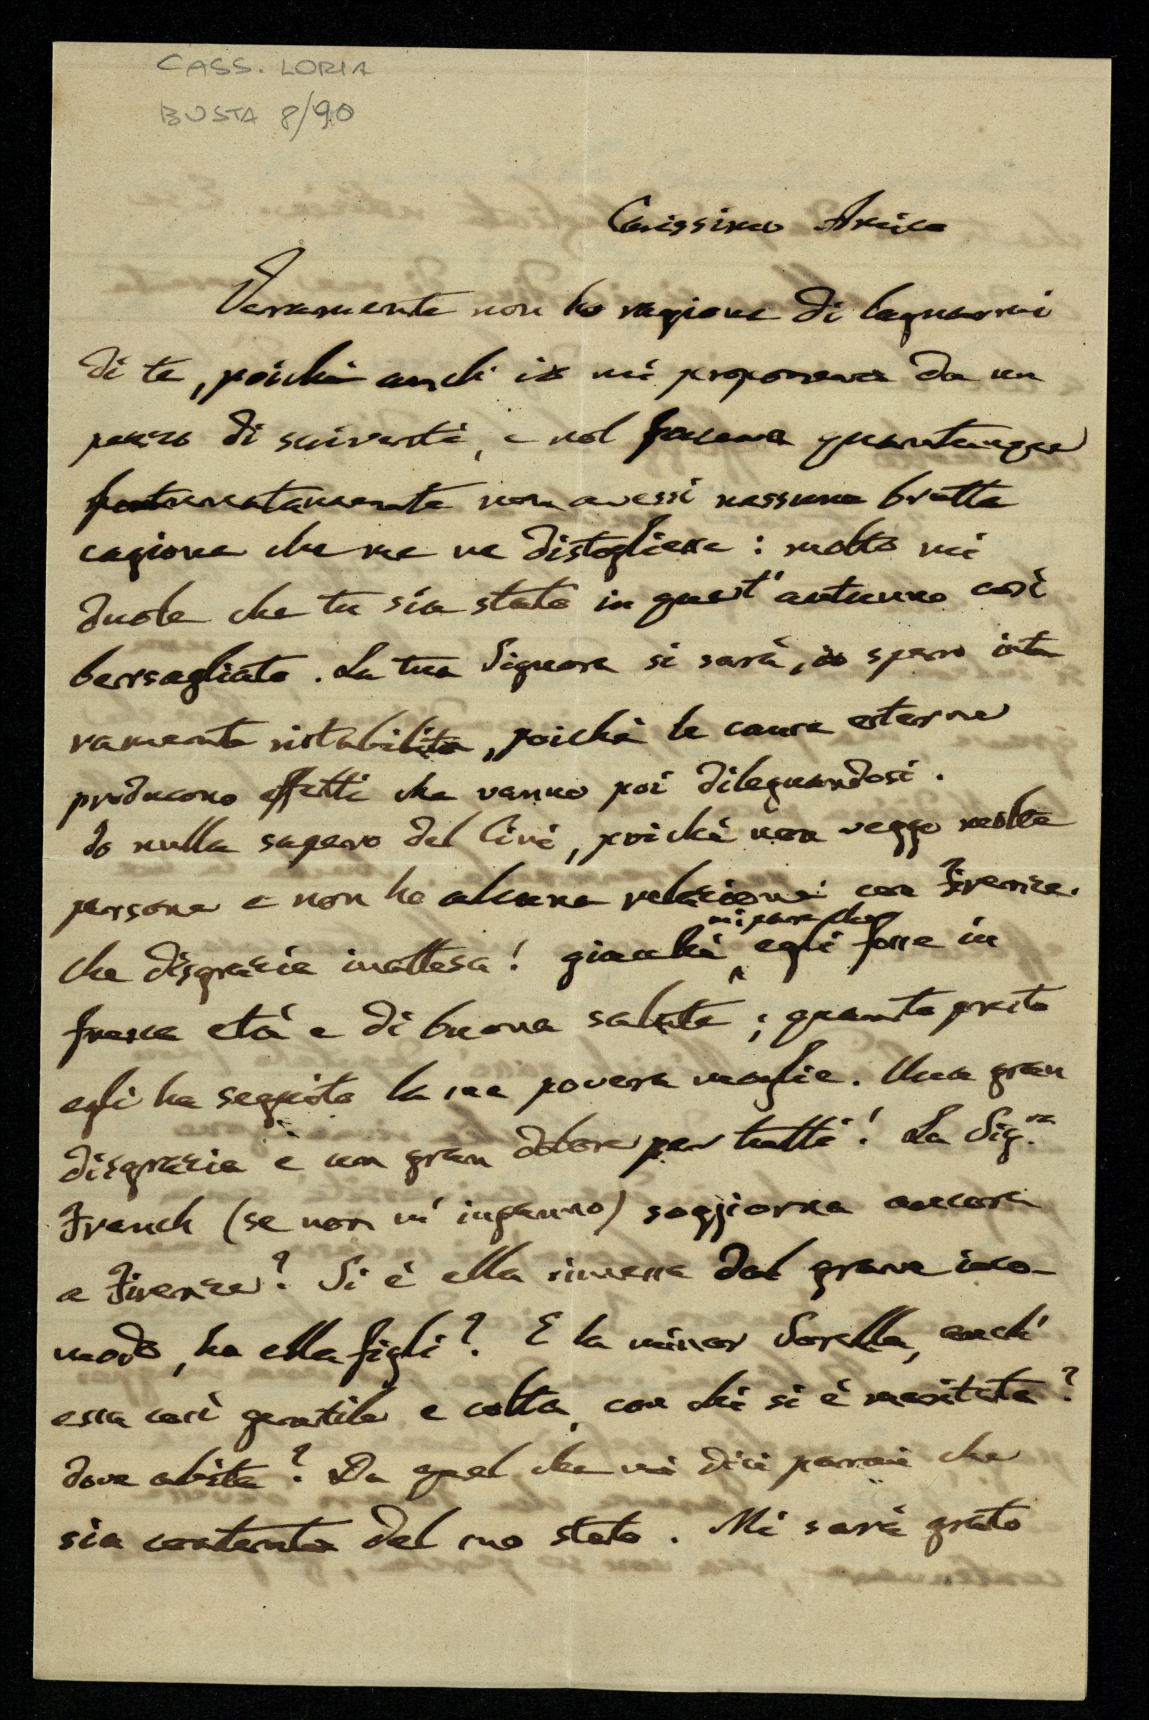 CASS. LORIA
BUSTA 8/90
Carissimo Amico
Veramente non ho ragione di lagnarmi
di te, poichè anch' io mi proponeva da un
pezzo di scriverti, e nol faceva quantunque
fortunatamente non avessi nessuna brutta
cagione che me ne distogliesse: molto mi
duole che tu sia stato in quest' autunno così
bersagliato. La tua Signora si sarà, io spero inte
ramente ristabilita, poichè le cause esterne
producono effetti che vanno poi dileguandosi.
Io nulla sapevo del Civi, poichè non veggo molte
persone e non ho alcuna relazione con Firenze.
Che disgrazia inattesa! giacchè mi pare che egli fosse in
fresca età e di buona salute; quanto presto
egli ha seguito la sua povera moglie. Una gran
disgrazia è un gran dolore per tutti! La Sig.ra
French (se non m' inganno) soggiorna ancora
a Firenze? Si è ella rimessa dal grave inco-
modo, ha ella figli? E la minor Sorella, anch'
essa così gentile e colta, con chi si è maritata?
dove abita? Da quel che mi dici parmi che
sia contenta del suo stato. Mi sarà grato